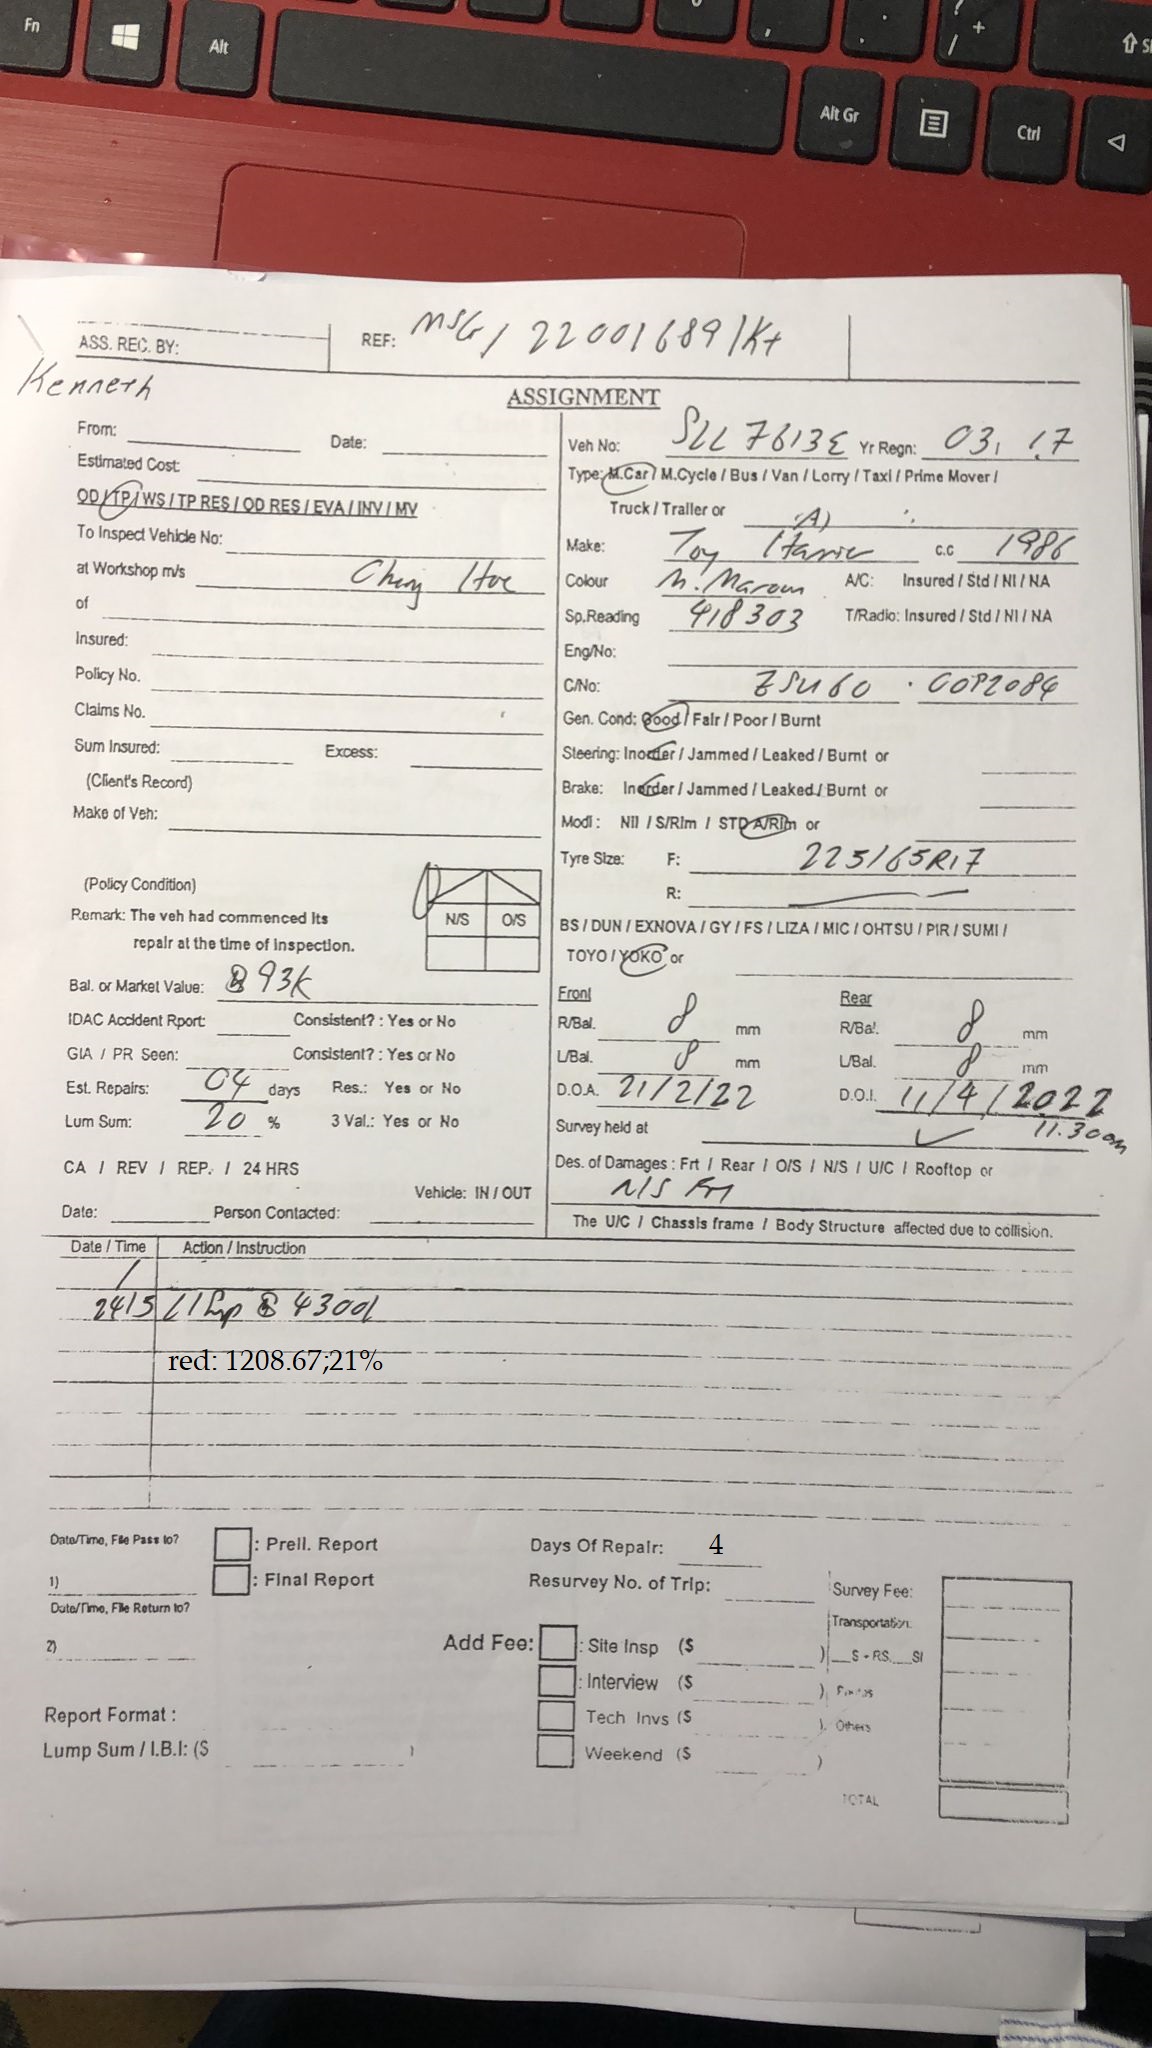 Fn
Alt
Alt Gr
Ctrl
ASS. REC. BY:
REF: MSG / 22001689 / Kt
Kenneth
ASSIGNMENT
From:
Date:
Estimated Cost:
OD / TP / WS / TP RES / OD RES / EVA / INV / MV
To Inspect Vehicle No:
at Workshop m/s Ching Hoe
of
Insured:
Policy No.
Claims No.
Sum Insured: Excess:
(Client's Record)
Make of Veh:
(Policy Condition)
N/S O/S
Remark: The veh had commenced its
repair at the time of inspection.
Bal. or Market Value: $ 93K
IDAC Accident Rport: Consistent? : Yes or No
GIA / PR Seen: Consistent? : Yes or No
Est. Repairs: 04 days Res.: Yes or No
Lum Sum: 20 % 3 Val.: Yes or No
CA / REV / REP. / 24 HRS
Vehicle: IN / OUT
Date: Person Contacted:
Veh No: SLL 7613E Yr Regn: 03, 17
Type: M.Car / M.Cycle / Bus / Van / Lorry / Taxi / Prime Mover /
Truck / Trailer or (A)
Make: Toy Harrier c.c 1986
Colour M. Maroon A/C: Insured / Std / NI / NA
Sp.Reading 418303 T/Radio: Insured / Std / NI / NA
Eng/No:
C/No: ZSU60 . 0092084
Gen. Cond: Good / Fair / Poor / Burnt
Steering: Inorder / Jammed / Leaked / Burnt or
Brake: Inorder / Jammed / Leaked / Burnt or
Modi : Nil / S/Rim / STD A/Rim or
Tyre Size: F: 225/65R17
R:
BS / DUN / EXNOVA / GY / FS / LIZA / MIC / OHTSU / PIR / SUMI /
TOYO / YOKO or
Front Rear
R/Bal. 8 mm R/Bal. 8 mm
L/Bal. 8 mm L/Bal. 8 mm
D.O.A. 21/2/22 D.O.I. 11/4/2022
Survey held at 11.30am
Des. of Damages : Frt / Rear / O/S / N/S / U/C / Rooftop or
N/S Frt
The U/C / Chassis frame / Body Structure affected due to collision.
Date / Time Action / Instruction
24/5 $ 4300/
red: 1208.67;21%
Date/Time, File Pass to?
1)
Date/Time, File Return to?
2)
: Prell. Report
: Final Report
Days Of Repair: 4
Resurvey No. of Trip:
Add Fee: : Site Insp ($ )
: Interview ($ )
Tech Invs ($ )
Weekend ($ )
Survey Fee:
Transportation.
S - RS. SI
Photos
Others
TOTAL
Report Format :
Lump Sum / I.B.I: ($ )